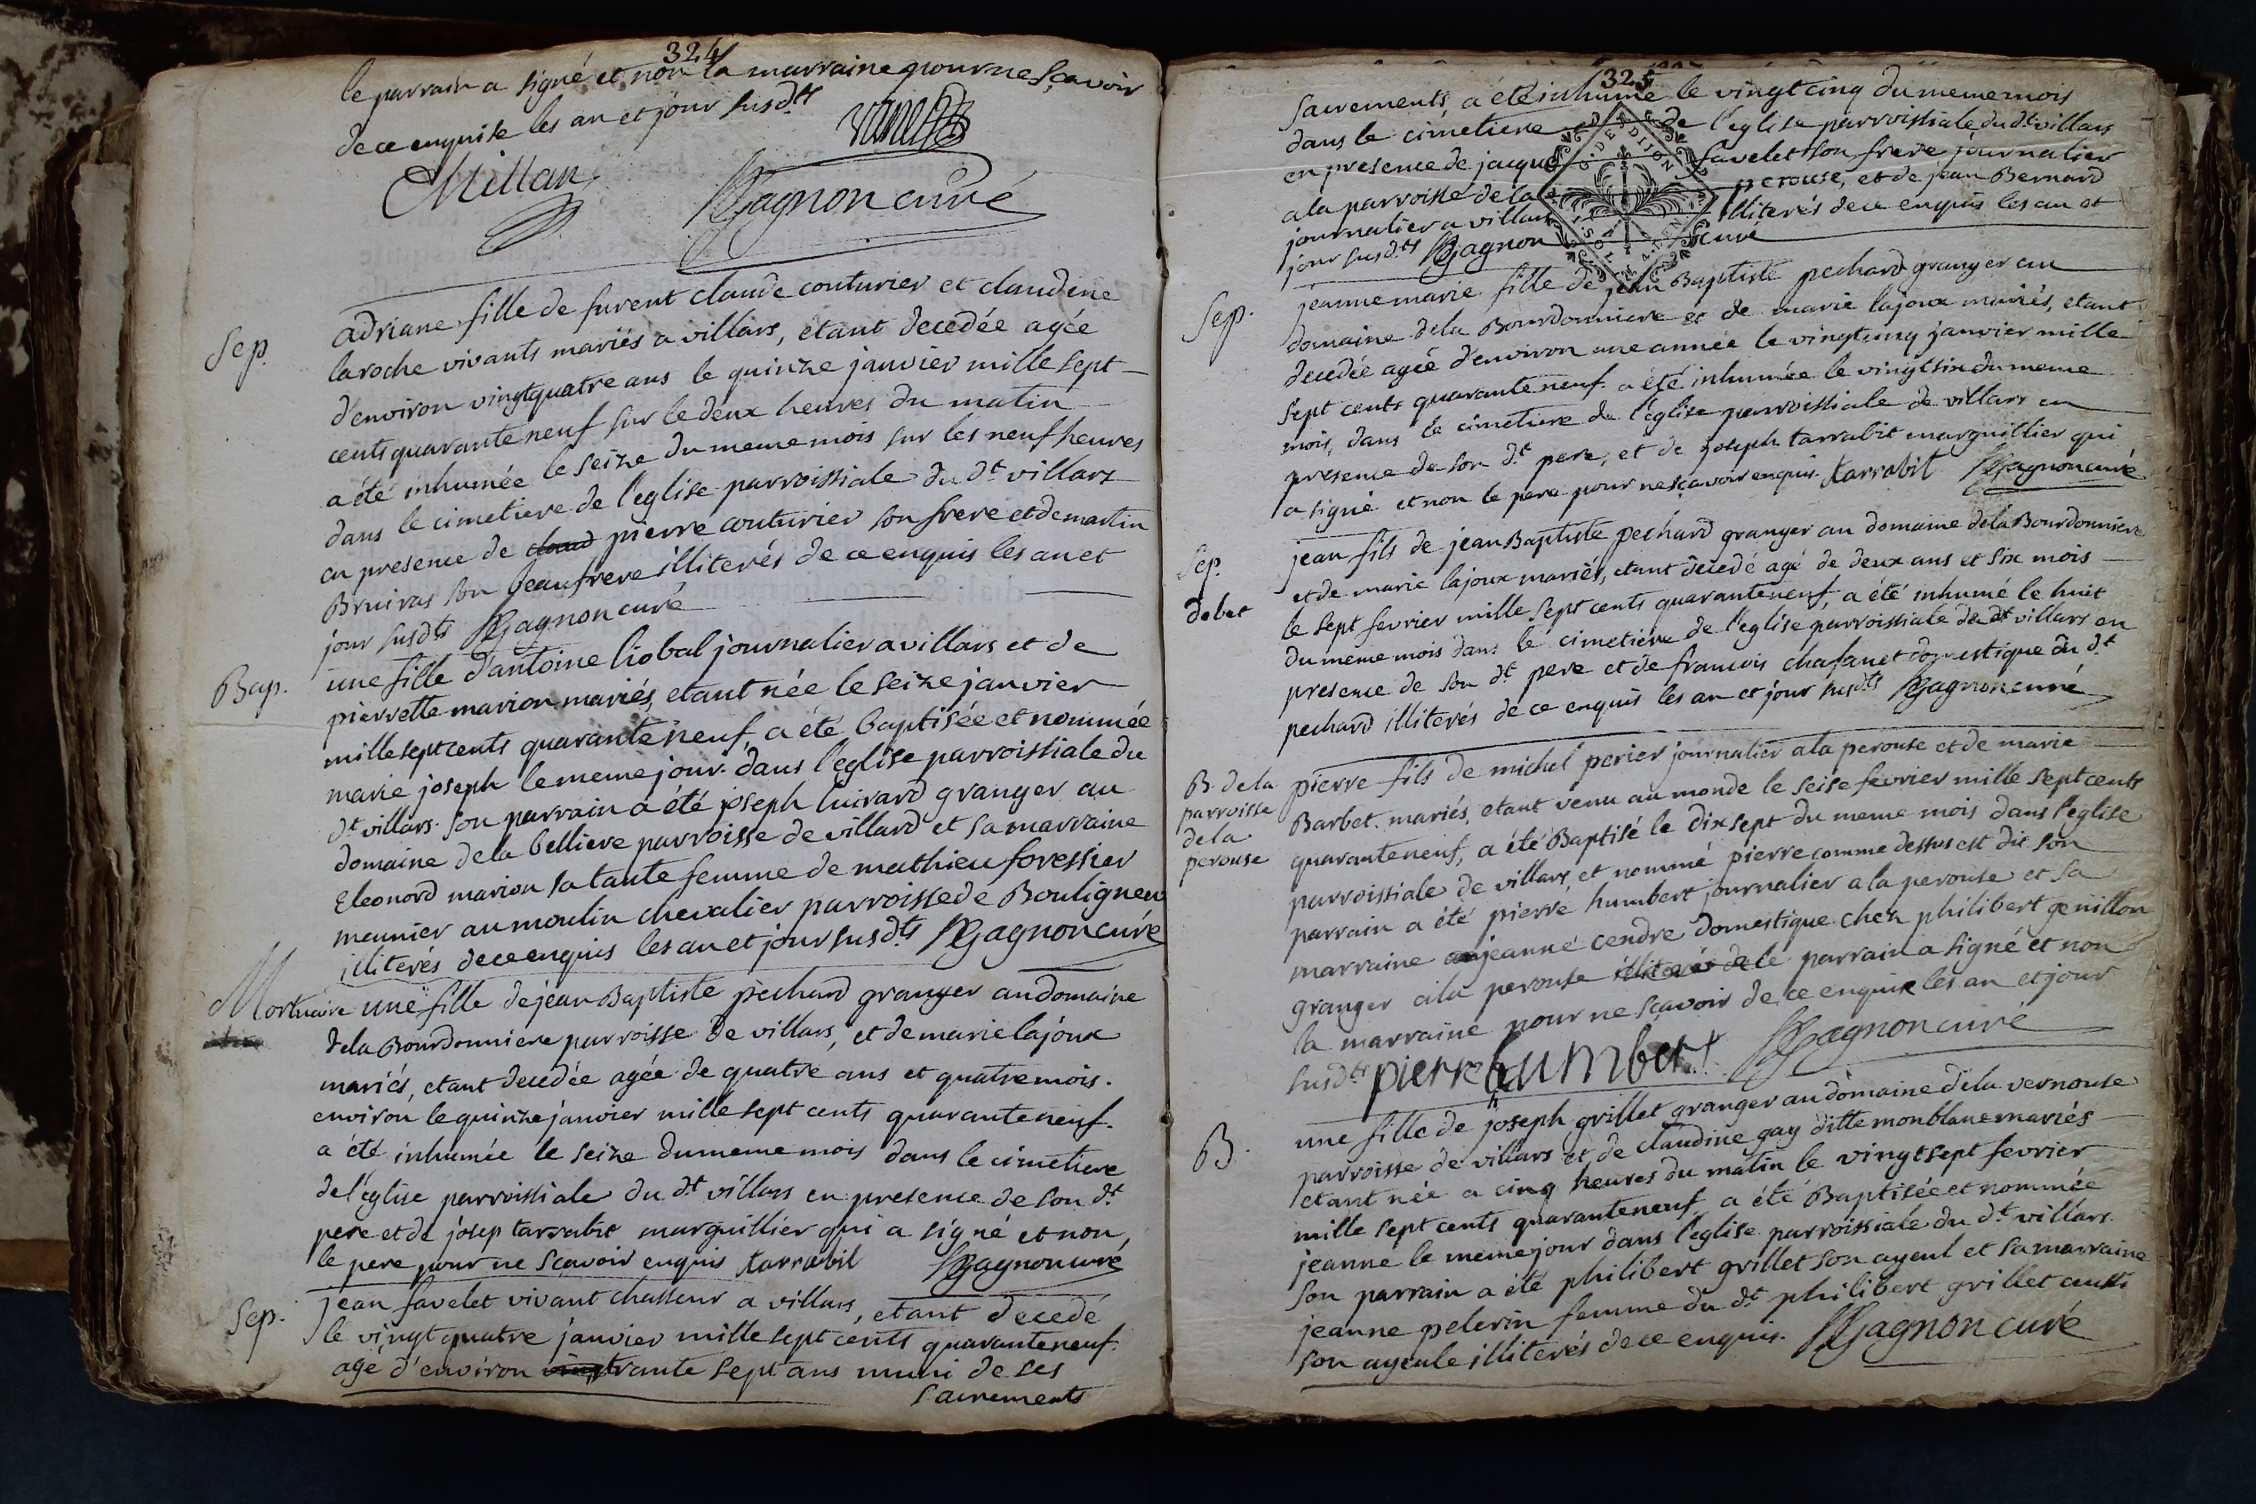 324
le parrain a signé et non la marraine pour ne sçavoir
de ce enquise les an et jour susdts
Millan
Gagnon curé
Sep.
adriane fille de furent claude couturier et claudine
laroche vivants mariés a villars, etant decedée agée
d'environ vingtquatre ans le quinze janvier mille sept
cents quarante neuf sur le deux heures du matin
a été inhumée le seize du meme mois sur les neuf heures
dans le cimetiere de l'eglise parroissiale du dt villars
en presence de claud pierre couturier son frere et de martin
Bruiras son beaufrere illiterés de ce enquis les an et
jour susdts Gagnon curé
Bap.
une fille d'antoine liobal journalier a villars et de
pierrette marion mariés, etant née le seize janvier
mille sept cents quarante neuf, a été baptisée et nommée
marie joseph le meme jour dans l'eglise parroissiale du
dt villars. son parrain a été joseph luirard granger au
domaine de la belliere parroisse de villard et sa marraine
Eleonord marion sa tante femme de mathieu foressier
meunier au moulin chevalier parroisse de Bouligneu
illiterés de ce enquis les an et jour susdts Gagnon curé
Mortuaire une fille de jean Baptiste pechard granger au domaine
de la Bourdonniere parroisse de villars, et de marie lajoux
mariés, etant decedée agée de quatre ans et quatre mois.
environ le quinze janvier mille sept cents quarante neuf.
a été inhumée le seize du meme mois dans le cimetiere
de l'eglise parroissiale du dt villars en presence de son dt
pere et de josep tarrabit marguillier qui a signé et non,
le pere pour ne sçavoir enquis tarrabit Gagnon curé
Sep.
jean favelet vivant chasseur a villars, etant decedé
le vingt quatre janvier mille sept cents quarante neuf.
agé d'environ vingt trante sept ans muni de ses
sacrements
325
sacrements, a été inhumé le vingt cinq du meme mois
dans le cimetiere de l'eglise parroissiale du dt villars
en presence de jacque favelet son frere journalier
a la parroisse de la perouse, et de jean Bernard
journalier a villars illiterés de ce enquis les an et
jour susdts Gagnon curé
G. DE DIJON
Sep.
jeanne marie fille de jean Baptiste pechard granger au
domaine de la Bourdonniere et de marie lajoux mariés, etant
decedée agée d'environ une année le vingt cinq janvier mille
sept cents quarante neuf. a été inhumée le vingt six du meme
mois, dans le cimetiere de l'eglise parroissiale de villars en
presence de son dt pere, et de joseph tarrabit marguillier qui
a signé et non le pere pour ne sçavoir enquis. tarrabit Gagnon curé
Sep.
debet
jean fils de jean Baptiste pechard granger au domaine de la Bourdonniere
et de marie lajoux mariés, etant decedé agé de deux ans et six mois
le sept fevrier mille sept cents quarante neuf, a été inhumé le huit
du meme mois dans le cimetiere de l'eglise parroissiale du dt villars en
presence de son dt pere et de francois chafanet domestique du dt
pechard illiterés de ce enquis les an et jour susdts Gagnon curé
B. de la
parroisse
de la
perouse
pierre fils de michel perier journalier a la perouse et de marie
Barbet. mariés, etant venu au monde le seise fevrier mille sept cents
quarante neuf, a été Baptisé le dix sept du meme mois dans l'eglise
parroissiale de villars, et nommé pierre comme dessus est dit son
parrain a été pierre humbert journalier a la perouse et sa
marraine jeanne cendre domestique chez philibert genillon
granger a la perouse illiterés de le parrain a signé et non
la marraine pour ne sçavoir de ce enquise les an et jour
susdts pierre humbert Gagnon curé
B.
une fille de joseph grillet granger au domaine de la vernouse
parroisse de villars et de claudine gay ditte monblanc mariés
etant née a cinq heures du matin le vingt sept fevrier
mille sept cents quarante neuf, a été Baptisée et nommée
jeanne le meme jour dans l'eglise parroissiale du dt villars.
son parrain a été philibert grillet son ayeul et sa marraine
jeanne pelerin femme du dt philibert grillet aussi
son ayeule illiterés de ce enquis. Gagnon curé